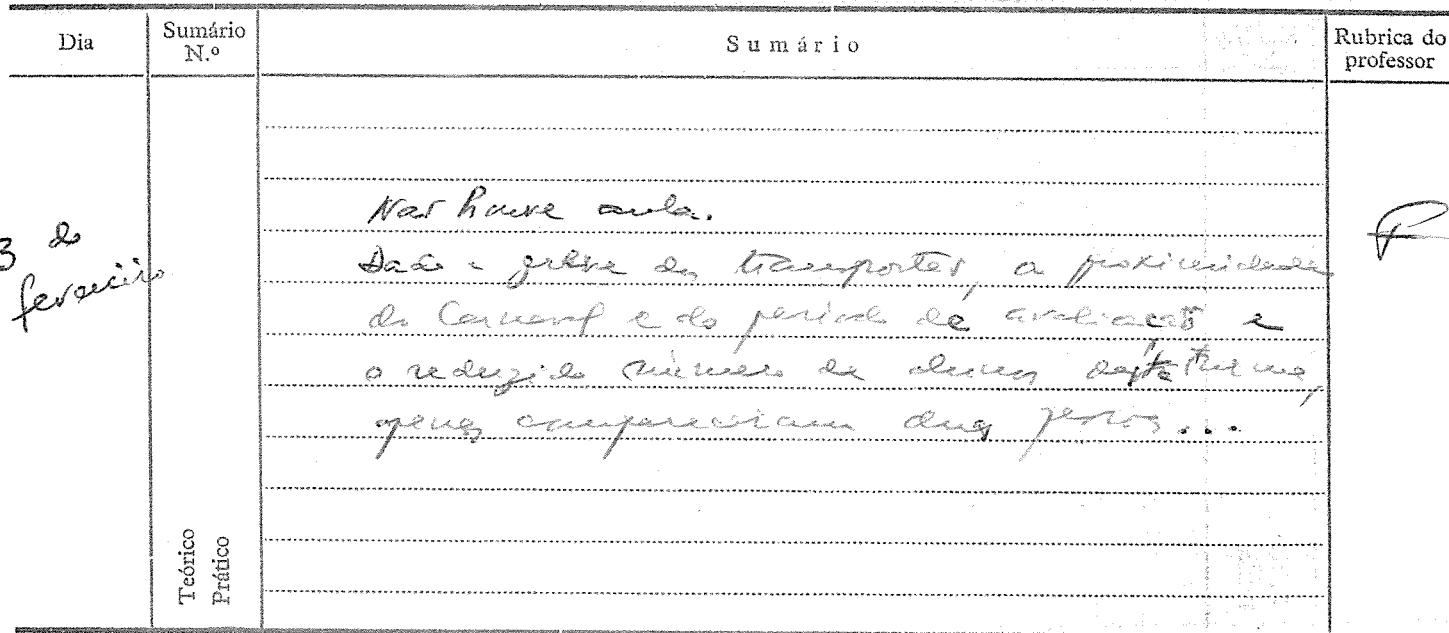 Dia
Sumário N.º
Sumário
Rubrica do professor
3 de fevereiro
Não houve aula.
Dada a greve dos transportes, a proximidade
do Carnaval e do período de avaliação e
o reduzido número de alunos desta turma,
apenas compareceram duas pessoas...
Teórico
Prático